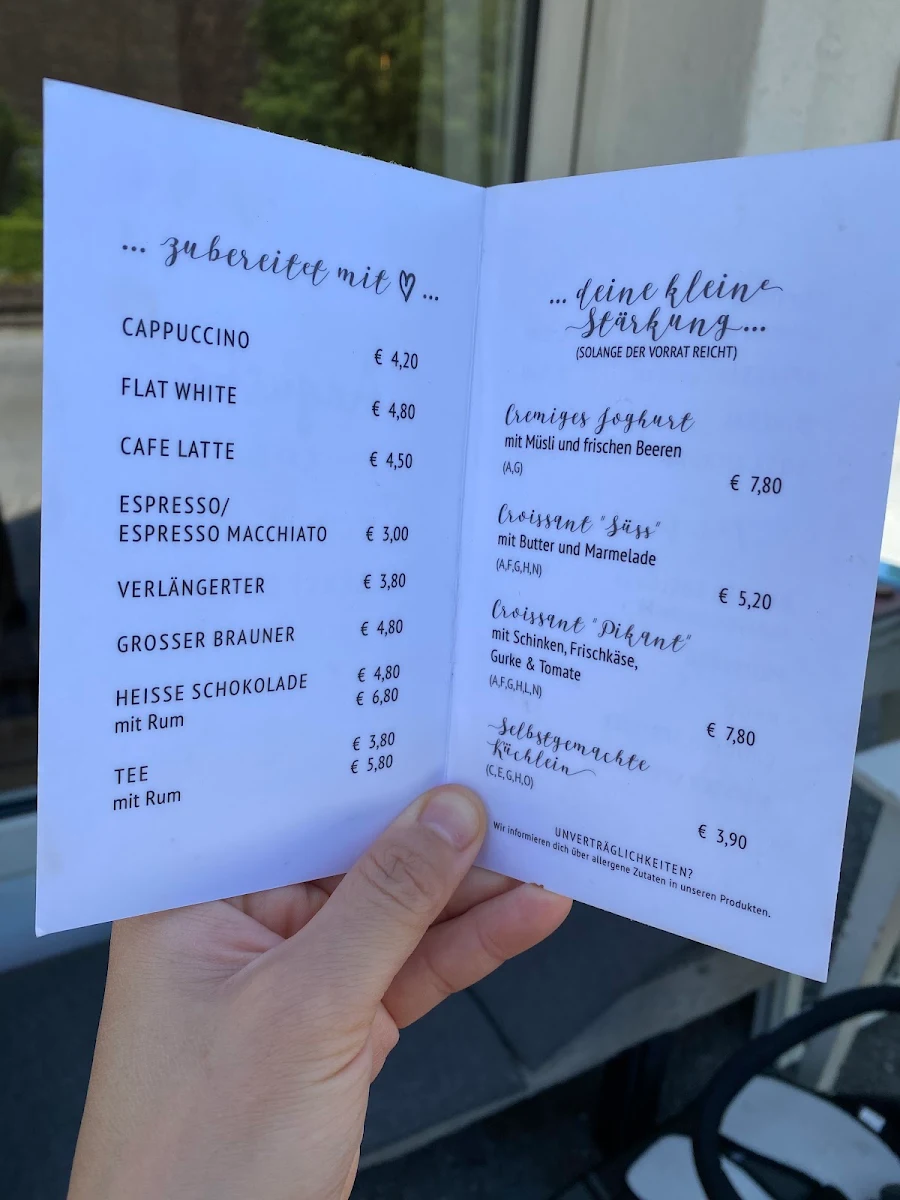 ... zubereitet mit ♡...
CAPPUCCINO
€ 4,20
FLAT WHITE
€ 4,80
CAFE LATTE
€ 4,50
ESPRESSO/
ESPRESSO MACCHIATO € 3,00
VERLÄNGERTER € 3,80
GROSSER BRAUNER € 4,80
HEISSE SCHOKOLADE € 4,80
mit Rum € 6,80
TEE € 3,80
mit Rum € 5,80
... deine kleine
Stärkung...
(SOLANGE DER VORRAT REICHT)
Cremiges Joghurt
mit Müsli und frischen Beeren
(A,G)
€ 7,80
Croissant "Süss"
mit Butter und Marmelade
(A,F,G,H,N)
€ 5,20
Croissant "Pikant"
mit Schinken, Frischkäse,
Gurke & Tomate
(A,F,G,H,L,N)
€ 7,80
Selbstgemachte
Küchlein
(C,E,G,H,O)
€ 3,90
UNVERTRÄGLICHKEITEN?
Wir informieren dich über allergene Zutaten in unseren Produkten.